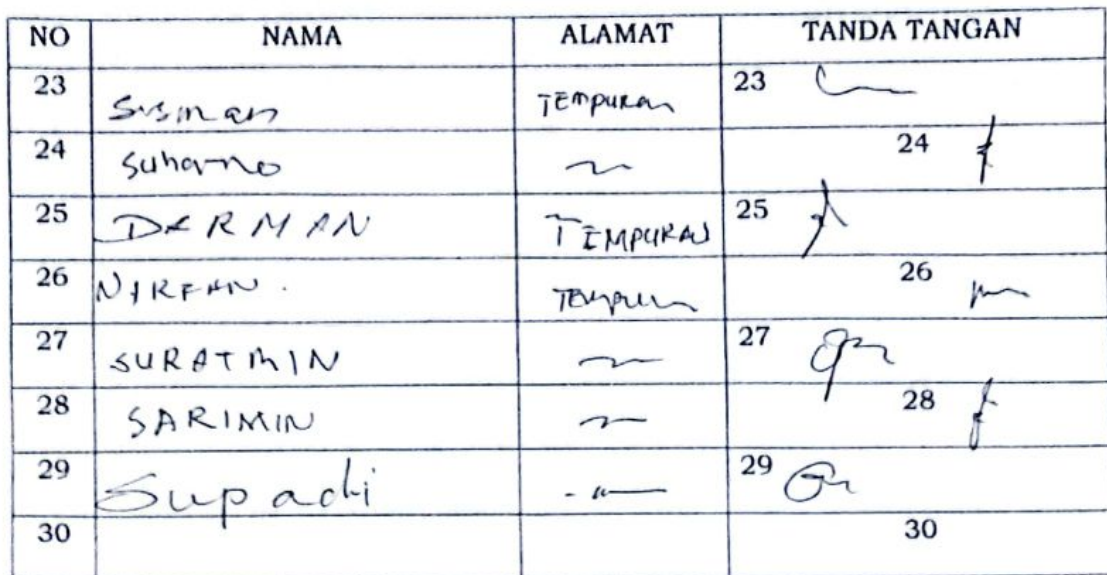 NO NAMA ALAMAT TANDA TANGAN
23 Susman TEMPURAN 23
24 Suharno 24
25 DARMAN TEMPURAN 25
26 NIRFAN. TEMPURAN 26
27 SURATMIN 27
28 SARIMIN 28
29 Supadi - " - 29
30 30